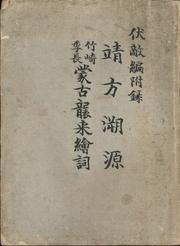 伏敵編附録
靖方溯源
竹崎季長
蒙古襲来繪詞